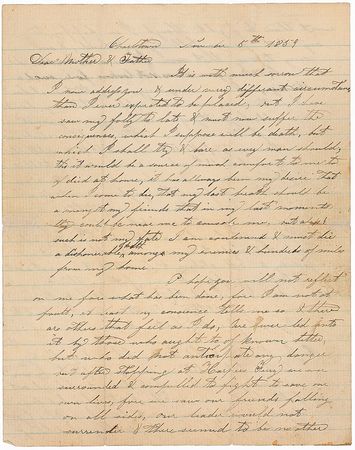 Charlestown Nov 5th 1859
Dear Mother & Father
It is with much sorrow that
I now address you & under very different circumstances
than I ever expected to be placed, but I have
saw my folly to late & must now suffer the
consequences, which I suppose will be death, but
which I shall try & bare as every man should,
tho it would be a source of much comfort to me to
of died at home, it has always been my desire that
when I come to die, that my last breath should be
among my friends that in my last moments
they could be near me to console me, but alas!
such is not my fate I am condemned & must die
a dishonorable death among my enemies & hundreds of miles
from my home.
I hope you will not reflect
on me for what has been done, for I am not at
fault, at least my conscience tells me so & there
are others that feel as I do, we were led into
it by those who ought to of known better,
but who did not anticipate any danger
but after stopping at Harpers Ferry we were
surrounded & compelled to fight to save our
own lives, for we saw our friends falling
on all sides, our leader would not
surrender & there seemed to be no other